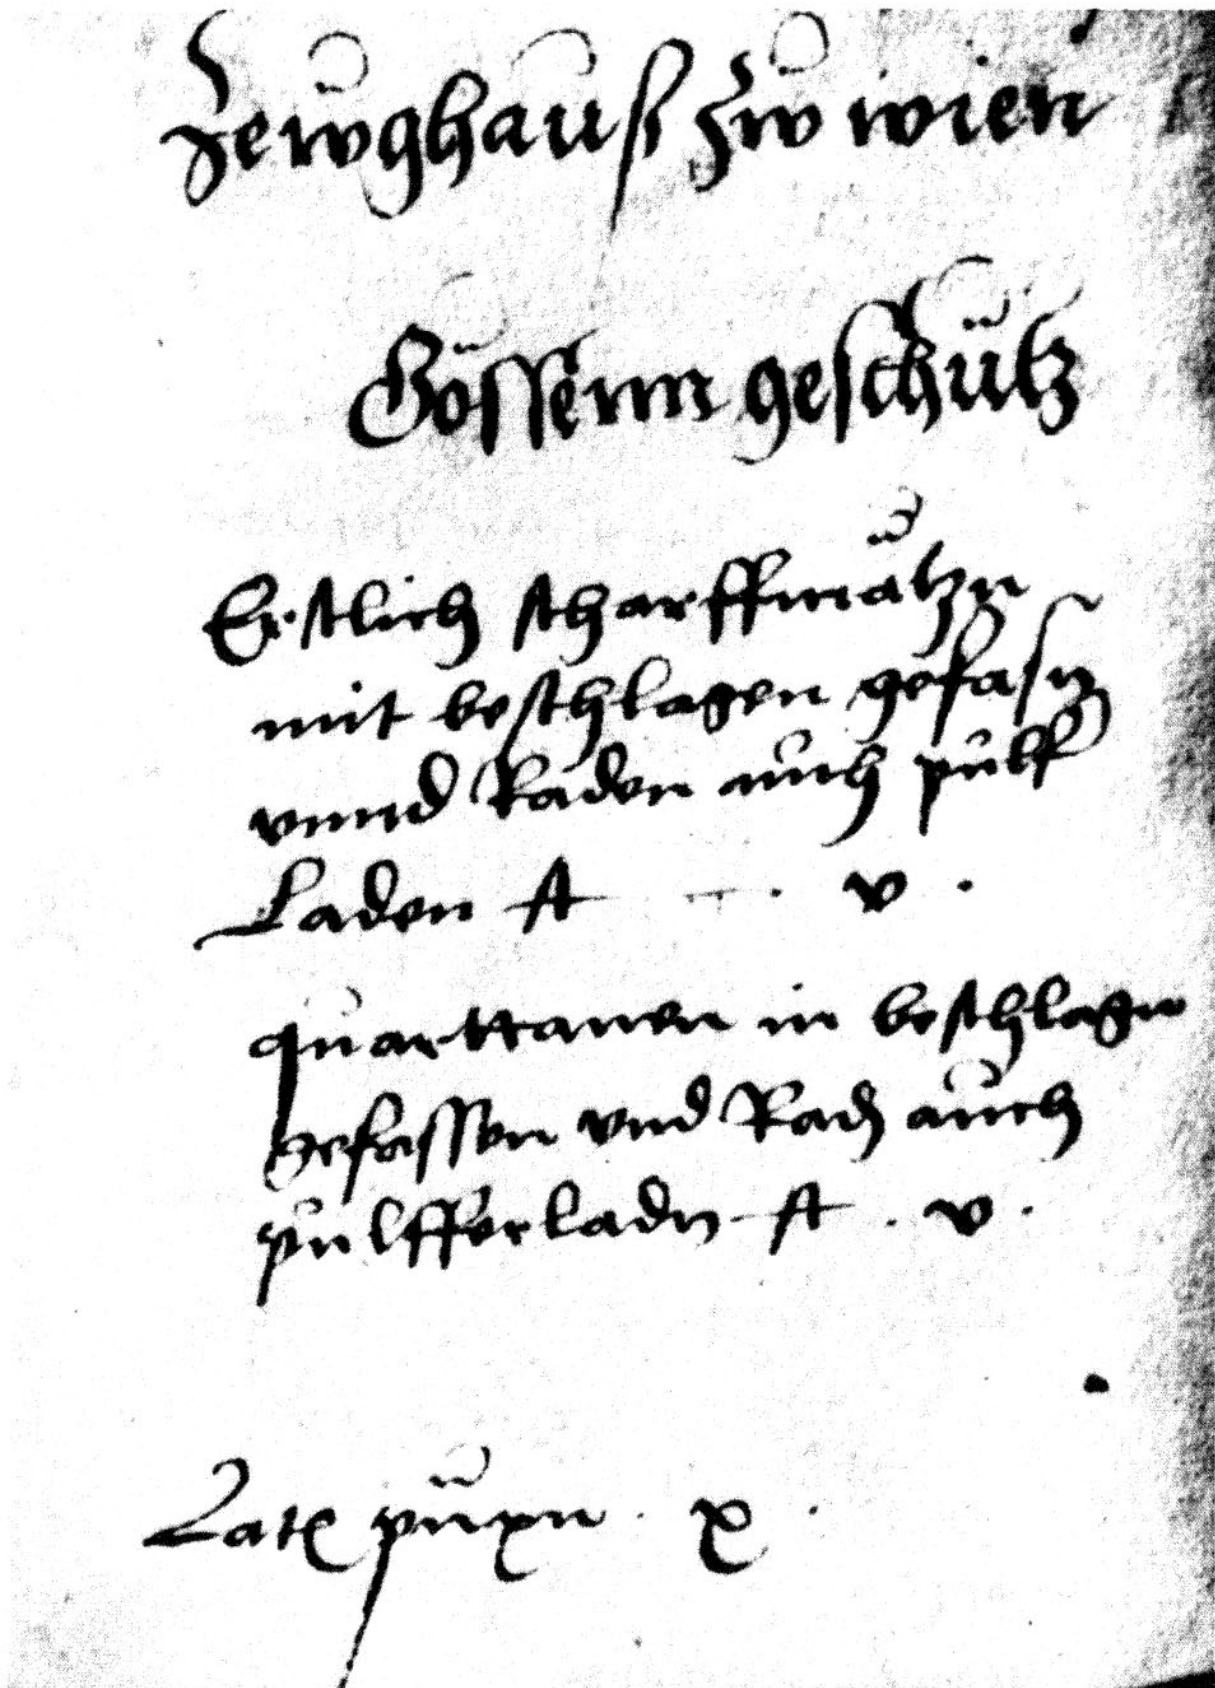 Zewghauß zw wien
Gössenn geschütz
Erstlich scharffmätzn
mit beschlagen gefasn
vnnd Räden auch pulf
Laden st v .
quarttanen in beschlagn
gefassen vnd Rad auch
pulfferladn st . v .
Late püxn . x .